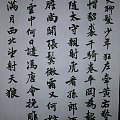 聊發少年狂左牽黃右擎
帽貂裘千騎卷平岡為
隨太守親射虎看孫郎
胸膽尚開張鬢微霜又何
雲中何日遣馮唐會挽雕
滿月西北望射天狼